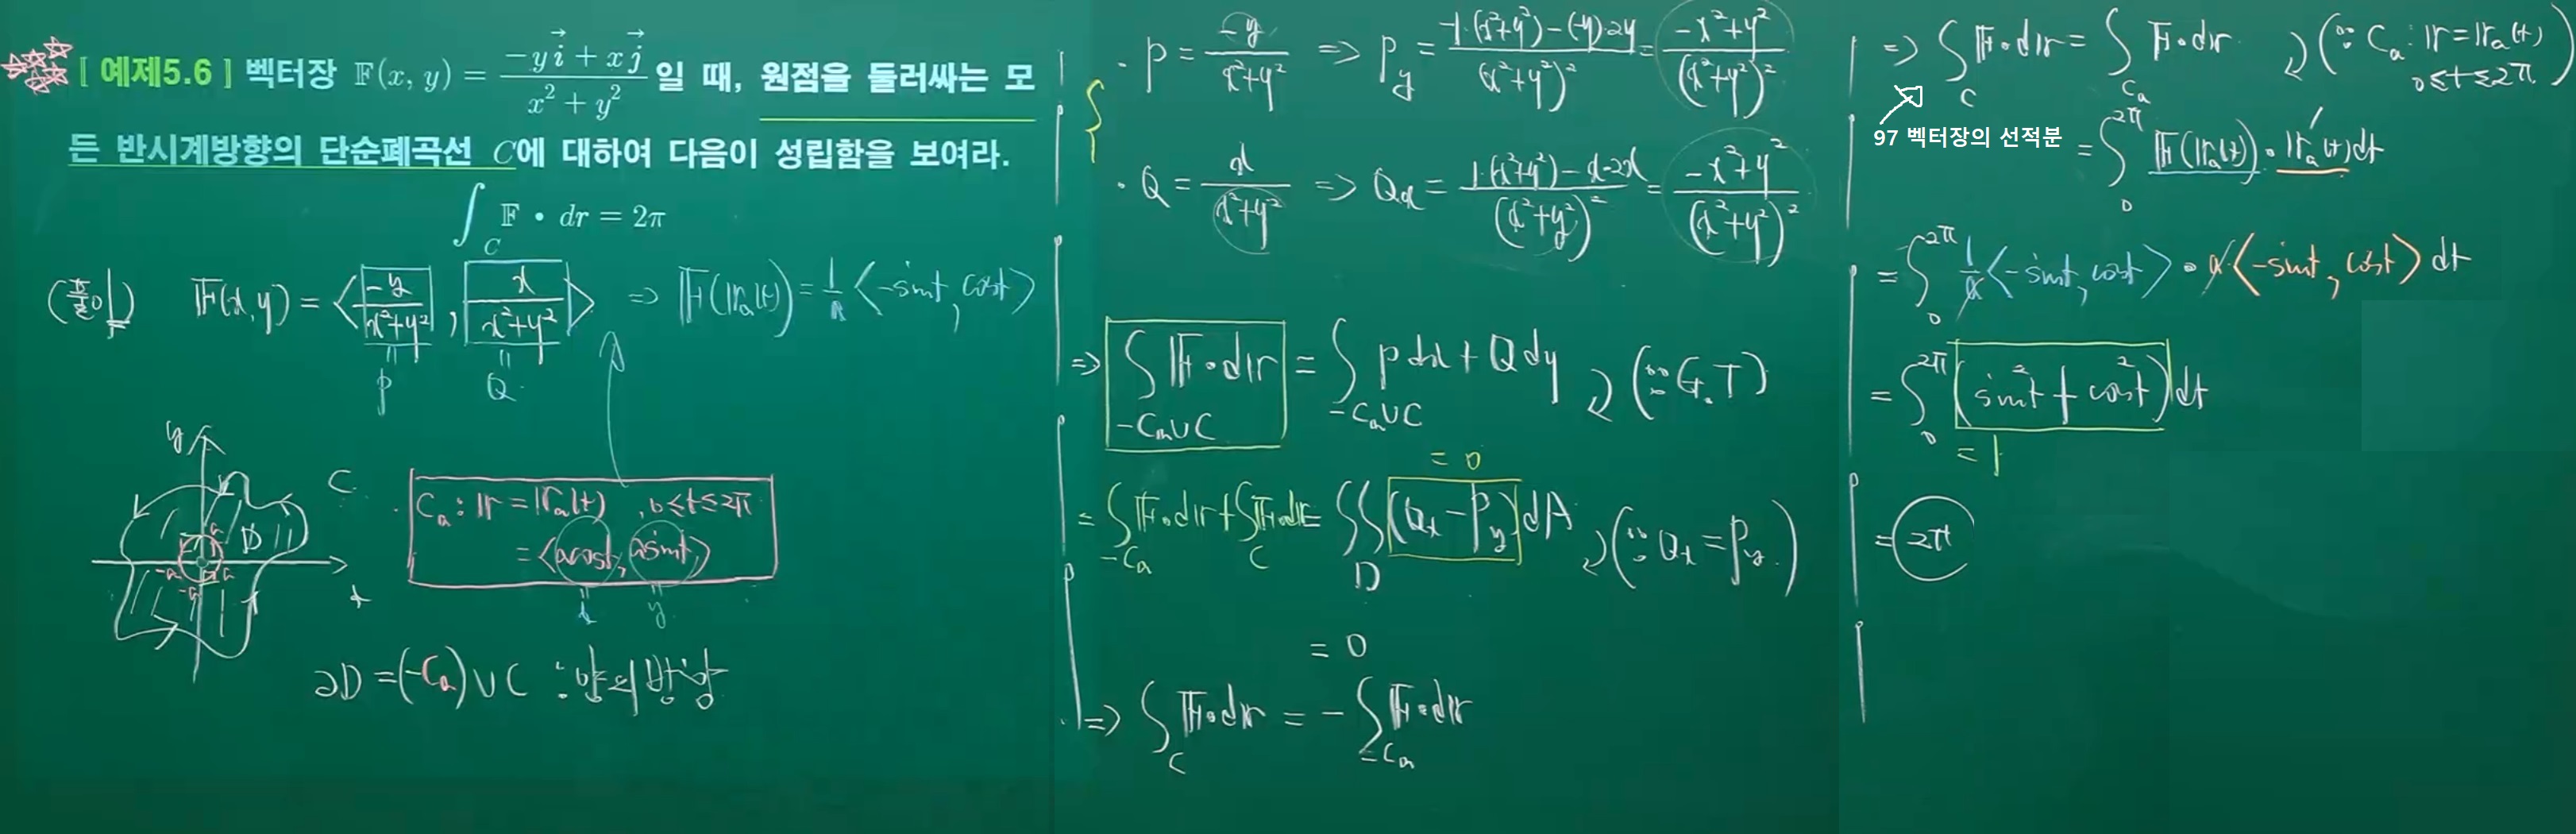 [ 예제5.6 ] 벡터장 𝔽(x, y) = (-y i⃗ + x j⃗)/(x² + y²) 일 때, 원점을 둘러싸는 모
든 반시계방향의 단순폐곡선 C에 대하여 다음이 성립함을 보여라.
∫_C 𝔽 • dr = 2π
(풀이) 𝔽(x,y) = < -y/(x²+y²), x/(x²+y²) > ⇒ 𝔽(𝕣ₐ(t)) = 1/a <-sint, cost>
= P
= Q
y
C
a
D
-a
a
-a
x
Cₐ : 𝕣 = 𝕣ₐ(t), 0≤t≤2π
= <acost, asint>
= x
= y
∂D = (-Cₐ) ∪ C : 양의 방향
· P = -y/(x²+y²) ⇒ P_y = (-1·(x²+y²)-(-y)·2y)/(x²+y²)² = (-x²+y²)/(x²+y²)²
· Q = x/(x²+y²) ⇒ Qₓ = (1·(x²+y²)-x·2x)/(x²+y²)² = (-x²+y²)/(x²+y²)²
⇒ ∫_{-Cₐ∪C} 𝔽·d𝕣 = ∫_{-Cₐ∪C} P dx + Q dy (∵ G.T)
= 0
= ∫_{-Cₐ} 𝔽·d𝕣 + ∫_C 𝔽·d𝕣 = ∬_D (Qₓ - P_y) dA (∵ Qₓ = P_y)
= 0
⇒ ∫_C 𝔽·d𝕣 = - ∫_{-Cₐ} 𝔽·d𝕣
⇒ ∫_C 𝔽·d𝕣 = ∫_{Cₐ} 𝔽·d𝕣 (∵ Cₐ : 𝕣 = 𝕣ₐ(t) 0≤t≤2π)
97 벡터장의 선적분
= ∫₀^{2π} 𝔽(𝕣ₐ(t)) · 𝕣ₐ′(t) dt
= ∫₀^{2π} 1/a <-sint, cost> · a <-sint, cost> dt
= ∫₀^{2π} (sin²t + cos²t) dt
= 1
= 2π